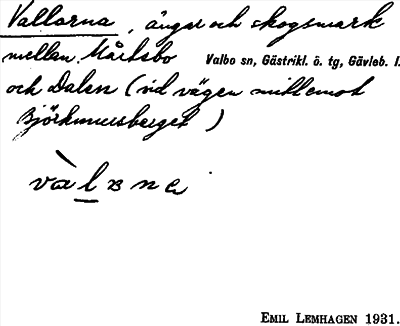 Vallarna, ängar och skogsmark
mellan Mårtsbo Valbo sn, Gästrikl. ö. tg, Gävleb. l.
och Dalen (vid vägen mittemot
Björkmursberget)
EMIL LEMHAGEN 1931.